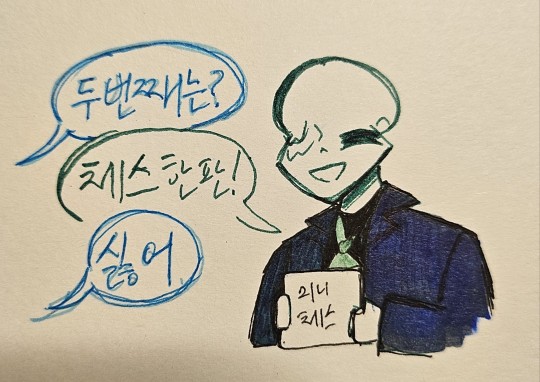 두번째는?
체스 한 판!
싫어
미니
체스